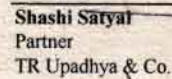 Shashi Satyal
Partner
TR Upadhya & Co.